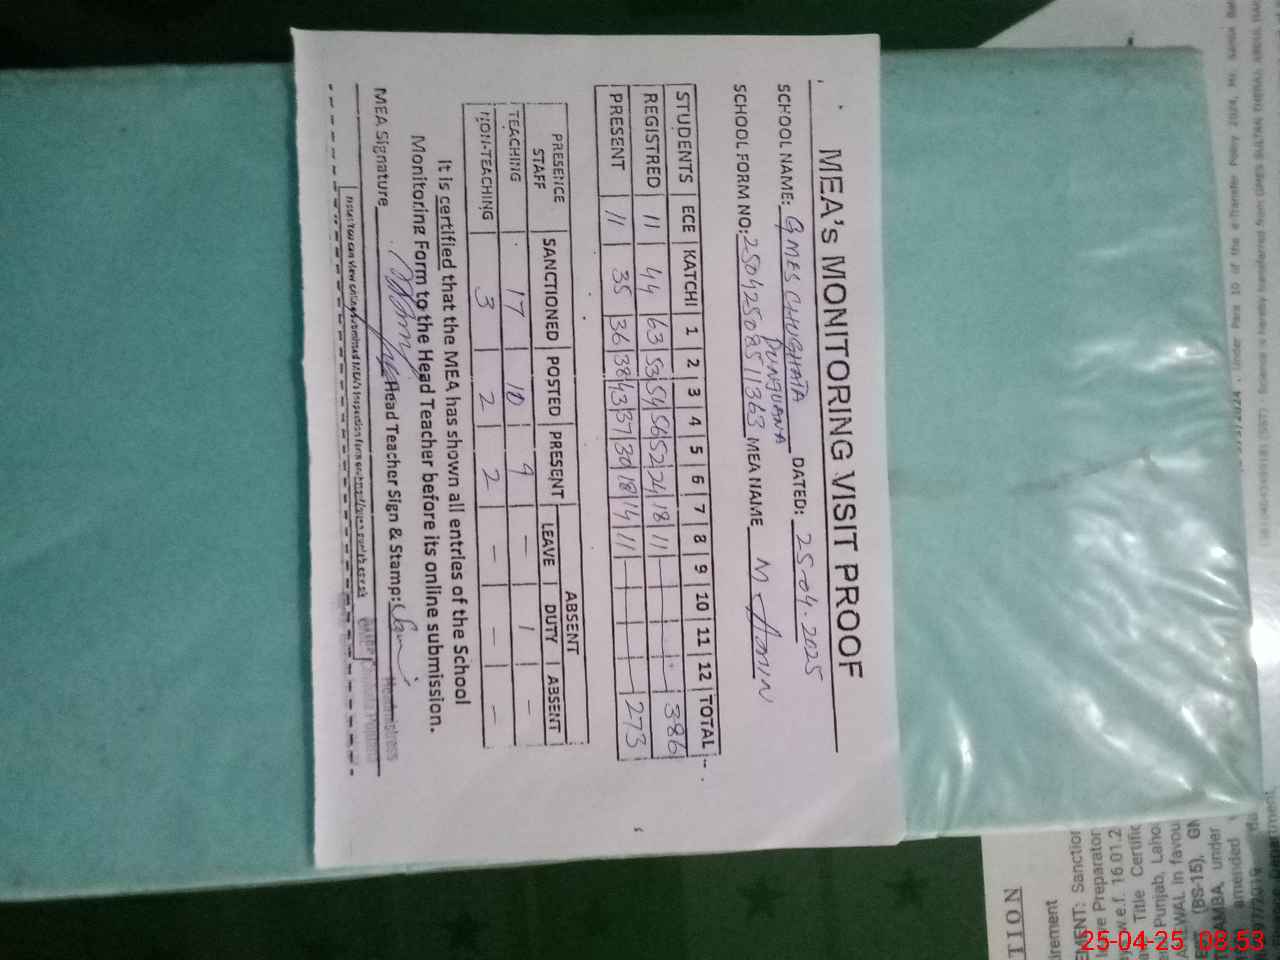 MEA's MONITORING VISIT PROOF
SCHOOL NAME: GMES CHUGHATA PUNJUANA DATED: 25-04-2025
SCHOOL FORM NO: 25042508511363 MEA NAME M. Amin
STUDENTS ECE KATCHI 1 2 3 4 5 6 7 8 9 10 11 12 TOTAL
REGISTRED 11 44 63 53 54 56 52 24 18 11 — — — — 386
PRESENT 11 35 36 38 43 37 30 18 14 11 — — — — 273
PRESENCE STAFF SANCTIONED POSTED PRESENT ABSENT
LEAVE DUTY ABSENT
TEACHING 17 10 9 — 1 —
NON-TEACHING 3 2 2 — — —
It is certified that the MEA has shown all entries of the School
Monitoring Form to the Head Teacher before its online submission.
MEA Signature Head Teacher Sign & Stamp:
Headmistress
TION
irement
MENT: Sanction
Preparator
w.e.f. 16.01.2
Title Certific
Punjab, Laho
WAL in favou
(BS-15), GN
AMBA, under
amended
25-04-25 08:53